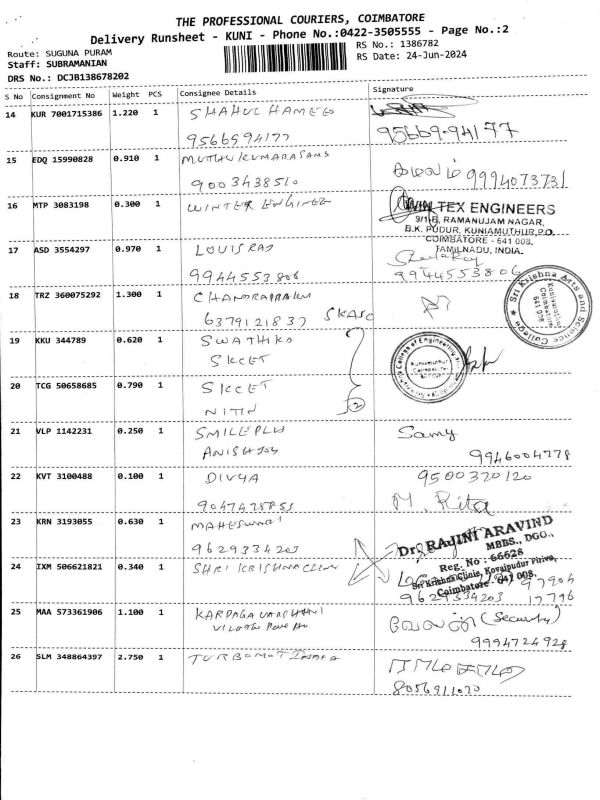 THE PROFESSIONAL COURIERS, COIMBATORE
Delivery Runsheet - KUNI - Phone No.:0422-3505555 - Page No.:2
Route: SUGUNA PURAM
RS No.: 1386782
Staff: SUBRAMANIAN
RS Date: 24-Jun-2024
DRS No.: DCJB138678202
S No Consignment No Weight PCS Consignee Details Signature
14 KUR 7001715386 1.220 1 SHAHUL HAMEED
9566994177 95669-94177
15 EDQ 15990828 0.910 1 MUTHUKUMARASAMY
9003438510 9994073731
16 MTP 3083198 0.300 1 WINTER ENGINEE
TEX ENGINEERS
9/1-B, RAMANUJAM NAGAR,
B.K. PUDUR, KUNIAMUTHUR,P.O.
COIMBATORE - 641 008.
TAMILNADU, INDIA.
17 ASD 3554297 0.970 1 LOUIS RAJ
9944553806 9944553806
18 TRZ 360075292 1.300 1 CHANDRAPRAKU
6379121837 SKASC
Sri Krishna Arts and Science College
Kuniamuthur
Coimbatore
641 008
19 KKU 344789 0.620 1 SWATHIKA
SKCET
College of Engineering
20 TCG 50658685 0.790 1 SKCET
NITIN 2
21 VLP 1142231 0.250 1 SMILEPLU Samy
ANISH JOY 9946004778
22 KVT 3100488 0.100 1 DIVYA 9500320120
9047425855 M. Rita
23 KRN 3193055 0.630 1 MAHESWARI
9629334203
Dr. RAJINI ARAVIND
MBBS., DGO.,
Reg. No : 66628
Sri Krishna Clinic, Kovaipudur Pirivu,
Coimbatore - 641 008.
24 IXM 506621821 0.340 1 SHRI KRISHNA CLINIC
9629334203 17796
25 MAA 573361906 1.100 1 KARPAGA VARSHINI (Security)
9994724928
26 SLM 348864397 2.750 1 TURBOMOT INDIA
8056911070